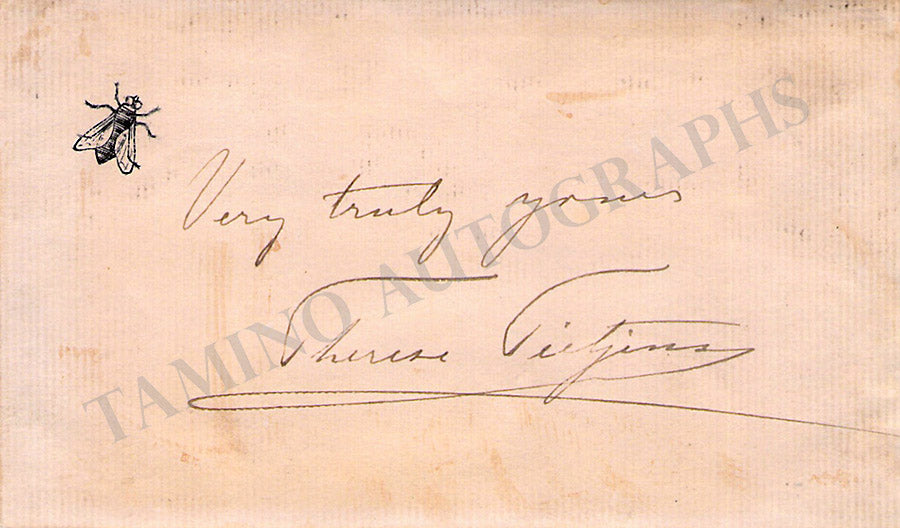 Very truly yours
Therese Tietjens
TAMINO AUTOGRAPHS